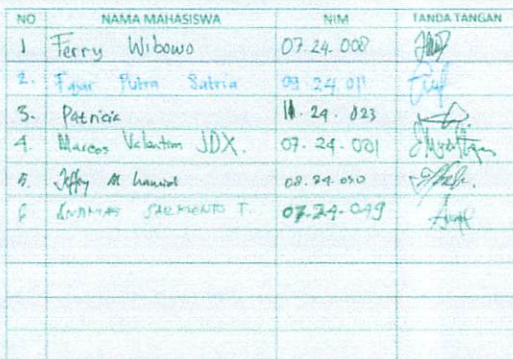 NO NAMA MAHASISWA NIM TANDA TANGAN
1 Ferry Wibowo 07.24.008
2. Fajar Putra Satria 09.24.011
3. Patricia 11.24.023
4. Marcos Valentim JDX. 07.24.001
5. Jeffry M 08.24.050
6 SARMENTO T. 07.24.049